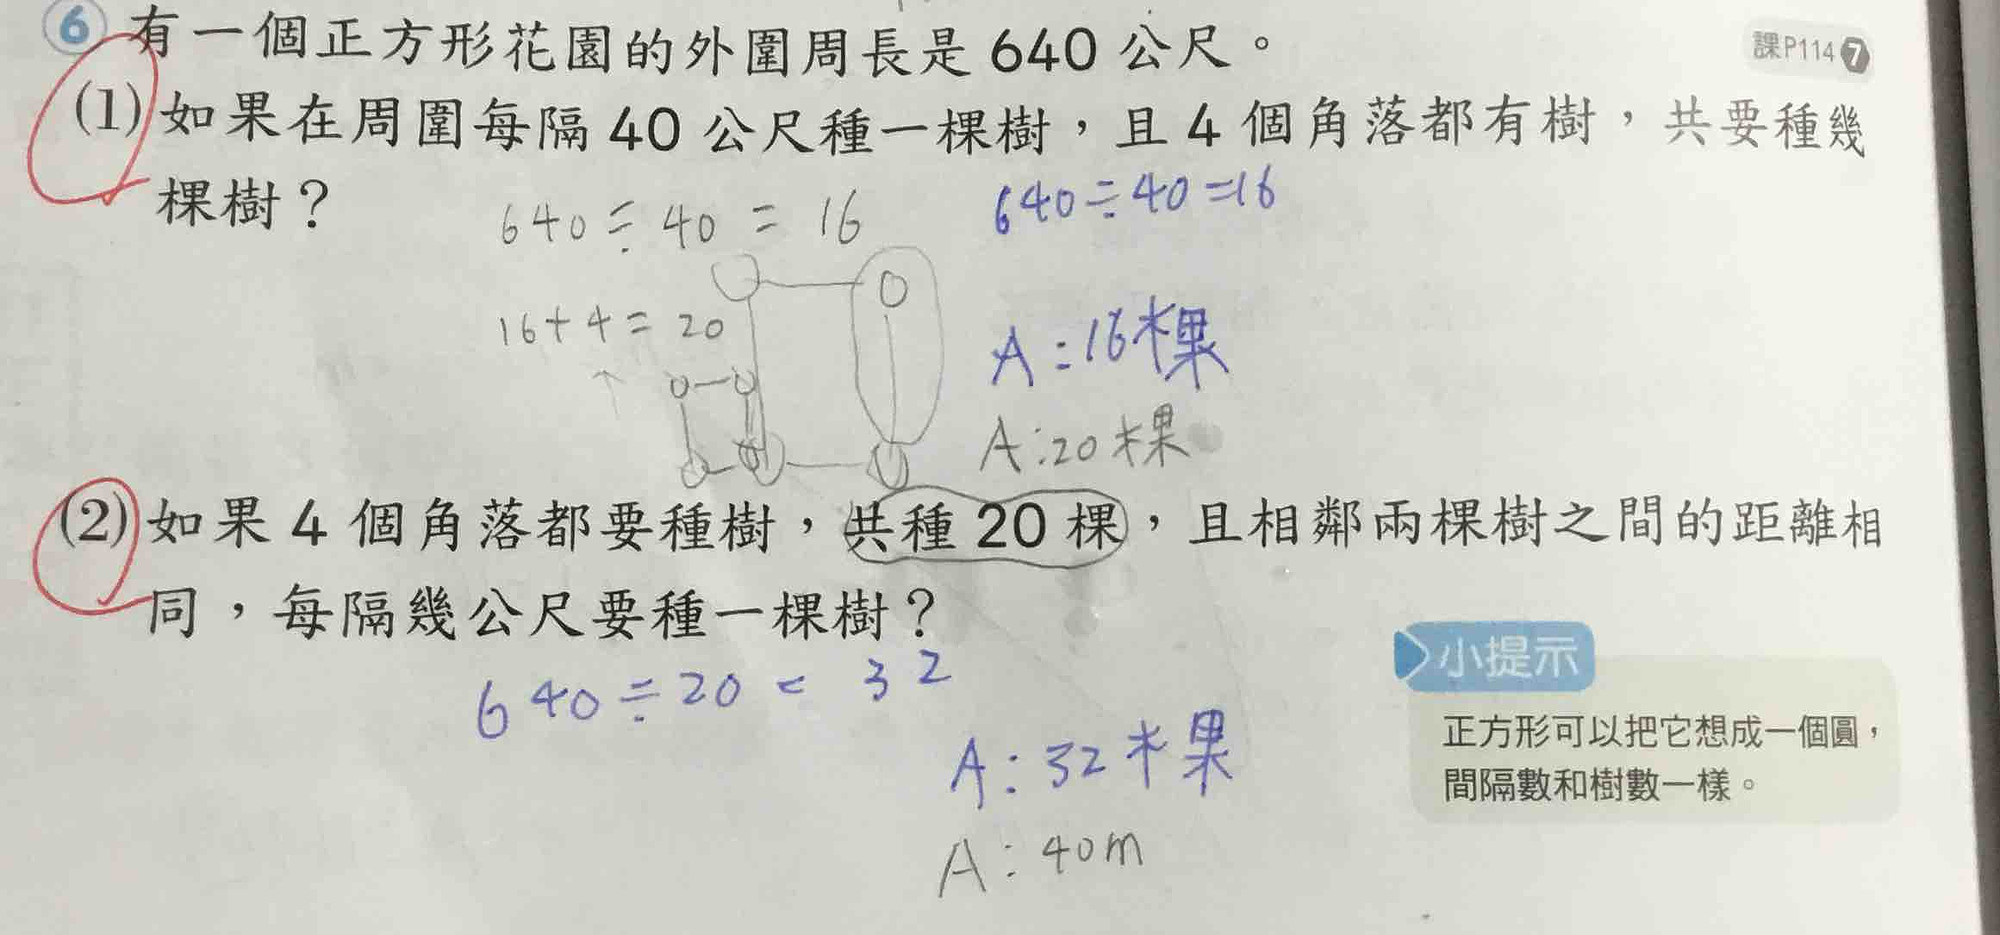 6 有一個正方形花園的外圍周長是 640 公尺。
課P114 7
(1) 如果在周圍每隔 40 公尺種一棵樹，且 4 個角落都有樹，共要種幾
棵樹？
640÷40=16
640÷40=16
16+4=20
A:16棵
A:20棵
(2) 如果 4 個角落都要種樹，共種 20 棵，且相鄰兩棵樹之間的距離相
同，每隔幾公尺要種一棵樹？
640÷20=32
小提示
正方形可以把它想成一個圓，
間隔數和樹數一樣。
A:32棵
A:40m